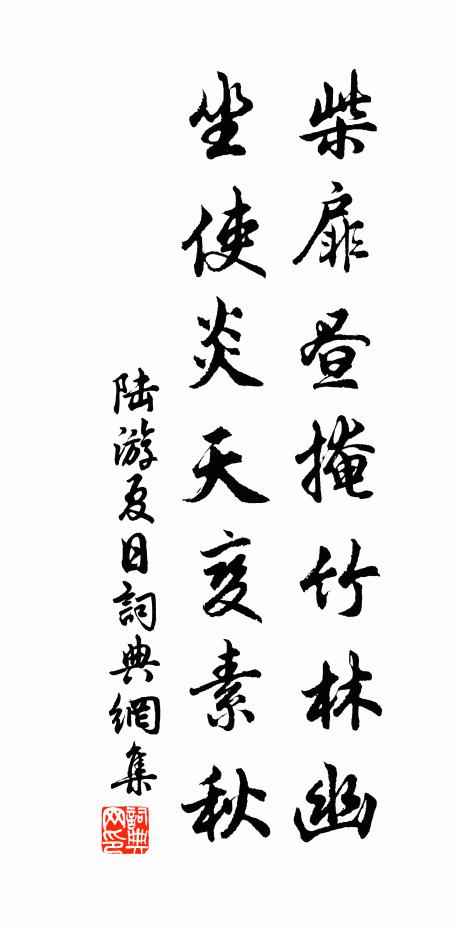 柴扉昼掩竹林幽
坐使炎天变素秋
陆游夏日詞典網集
詞典网印